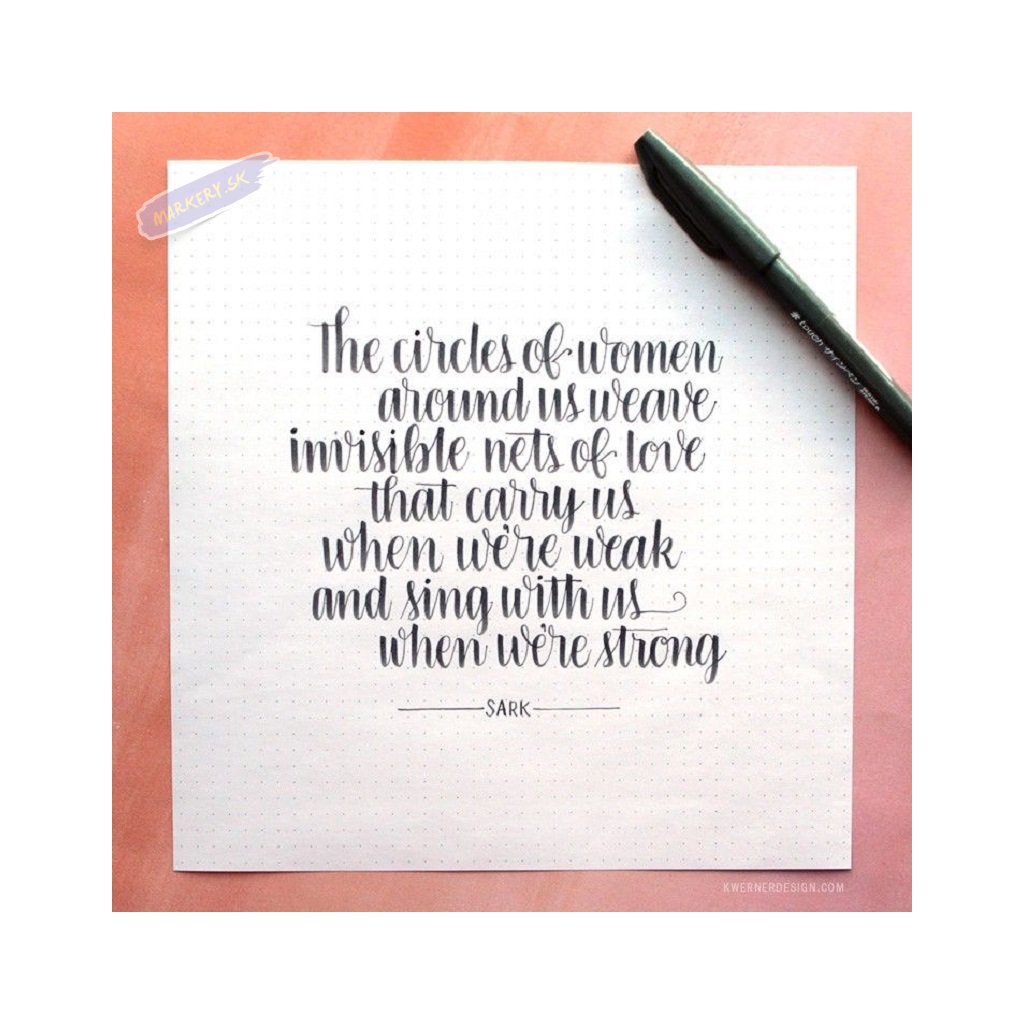 MARKERY.SK
The circles of women
around us weave
invisible nets of love
that carry us
when we're weak
and sing with us
when we're strong
SARK
# touch サインペン
KWERNERDESIGN.COM